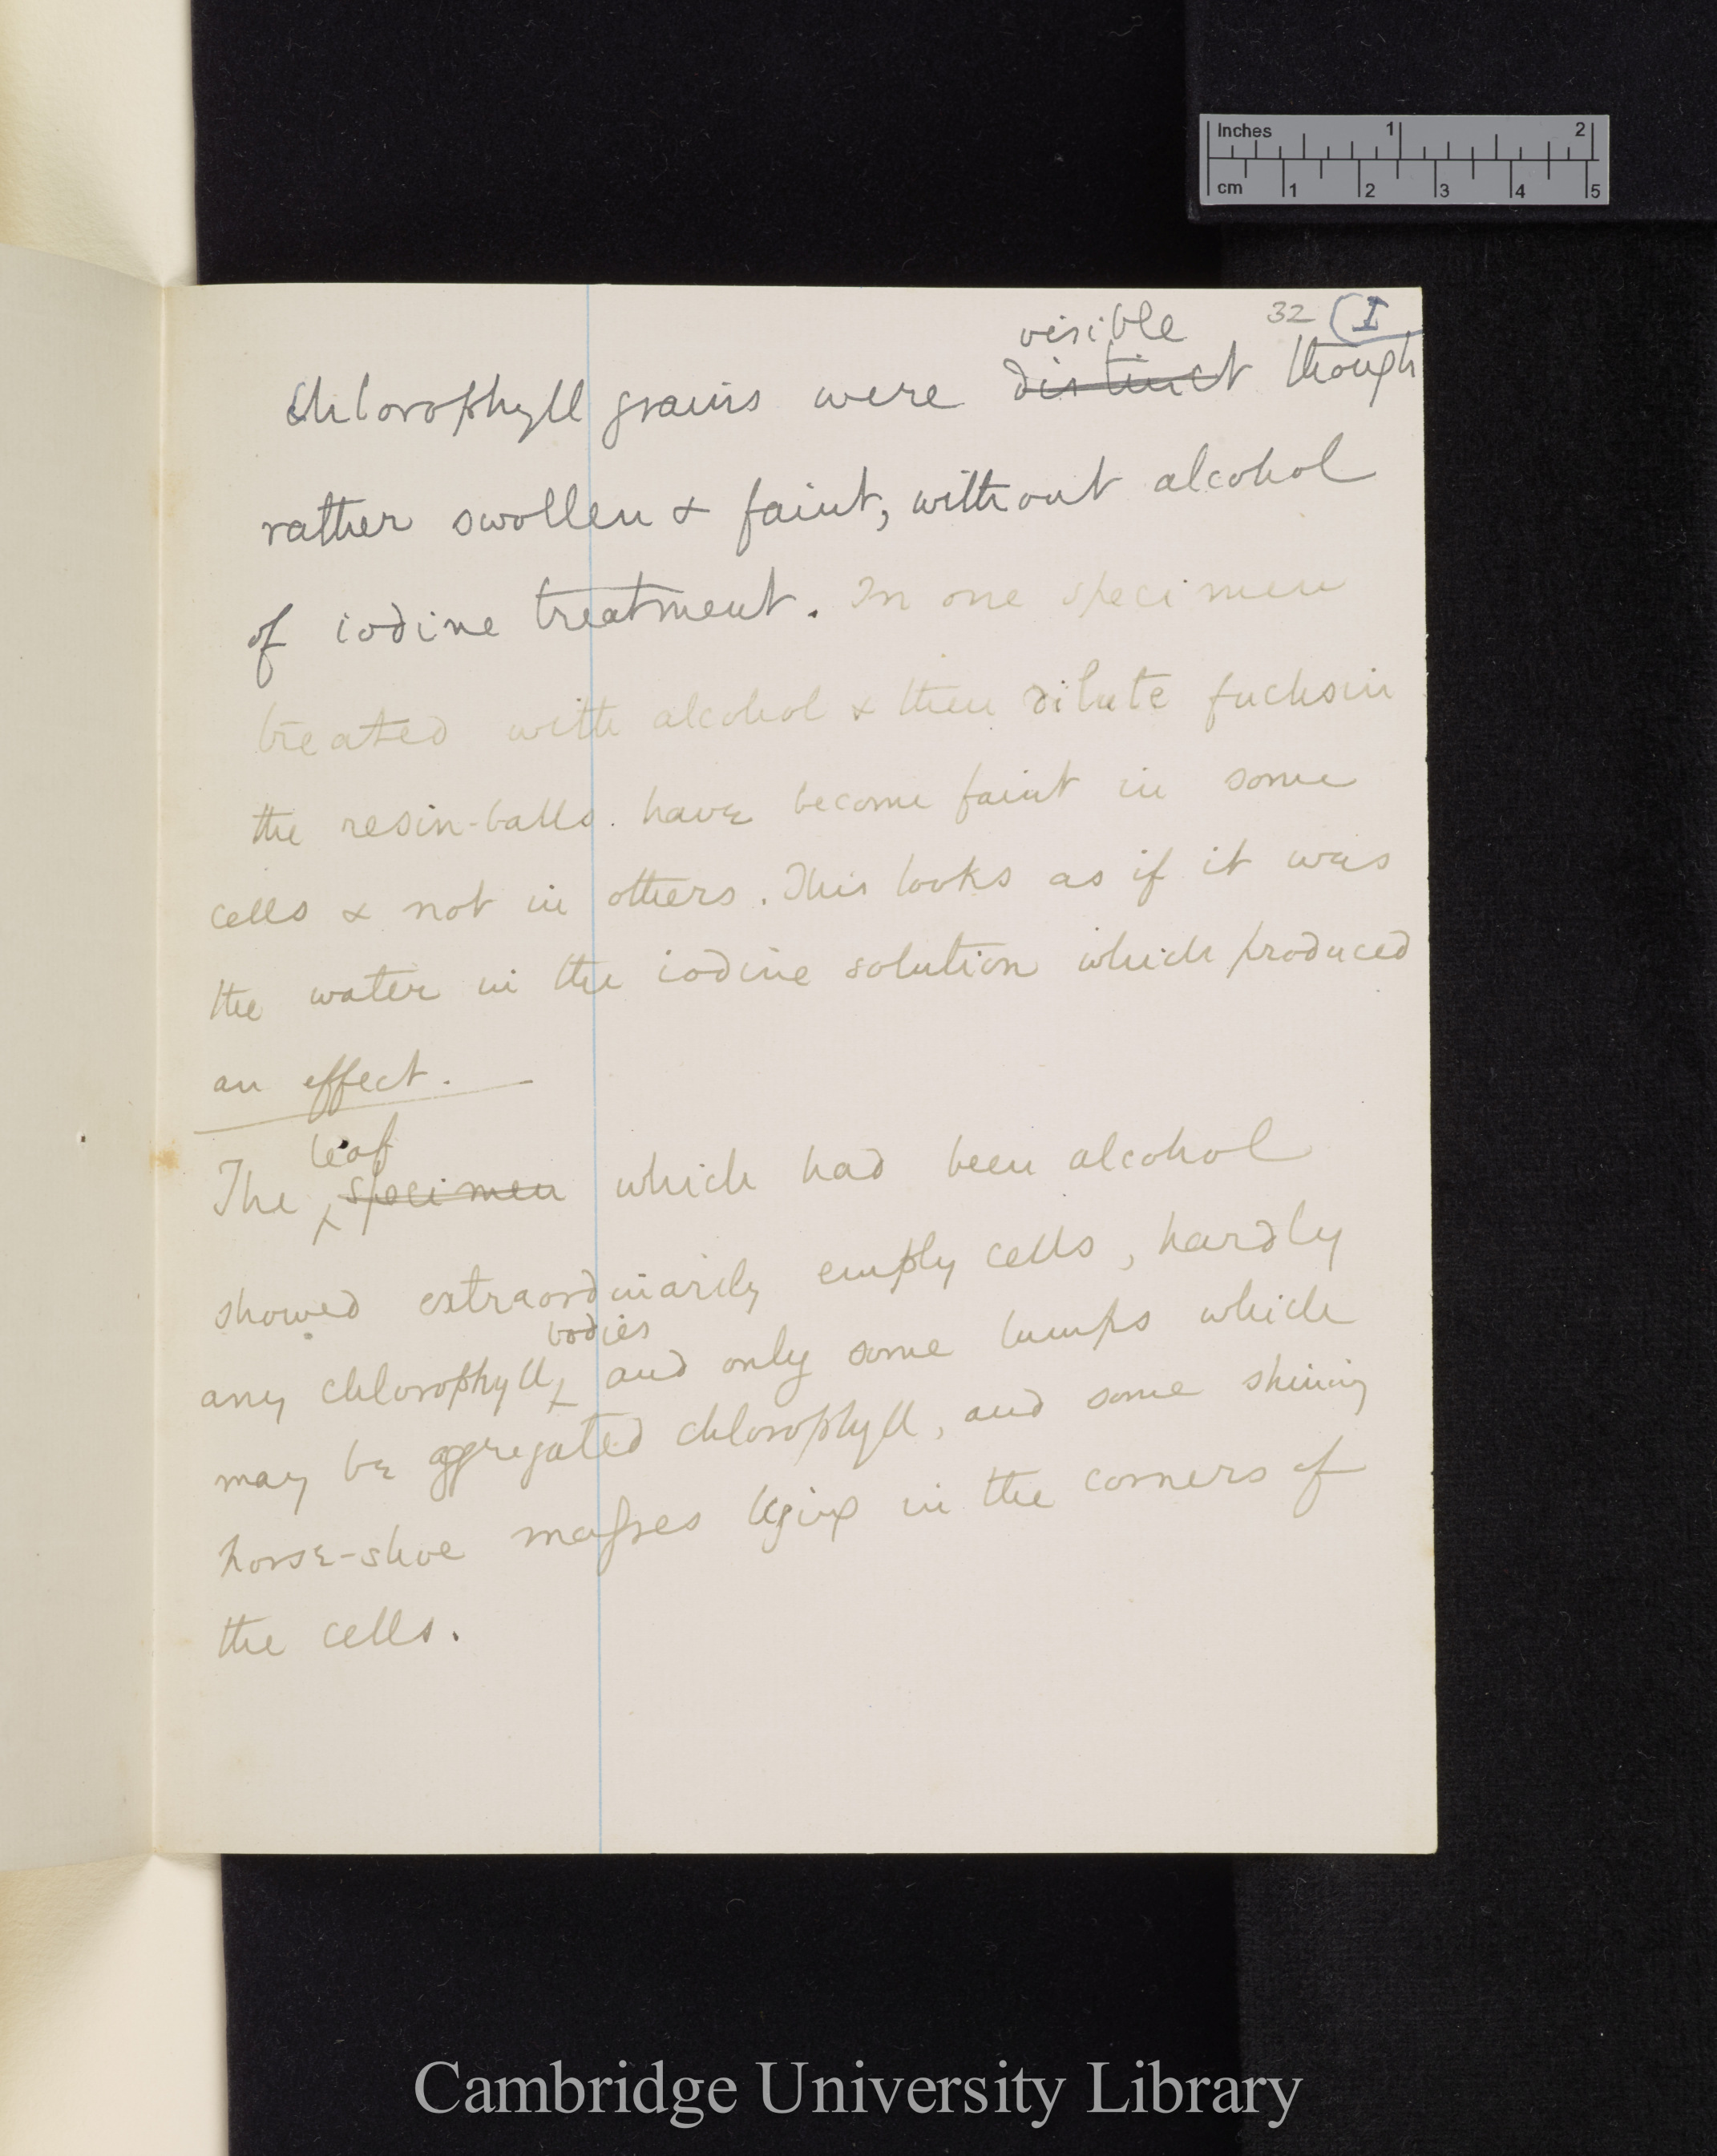 Inches 1 2
cm 1 2 3 4 5
32 I
visible
Chlorophyll grains were distinct though
rather swollen & faint, without alcohol
of iodine treatment. In one specimen
treated with alcohol & then dilute fuchsin
the resin-balls. have become faint in some
cells & not in others. This looks as if it was
the water in the iodine solution which produced
an effect.
leaf
The specimen which had been alcohol
showed extraordinarily empty cells, hardly
bodies
any chlorophyll, and only some lumps which
may be aggregated chlorophyll, and some shining
horse-shoe masses lying in the corners of
the cells.
Cambridge University Library